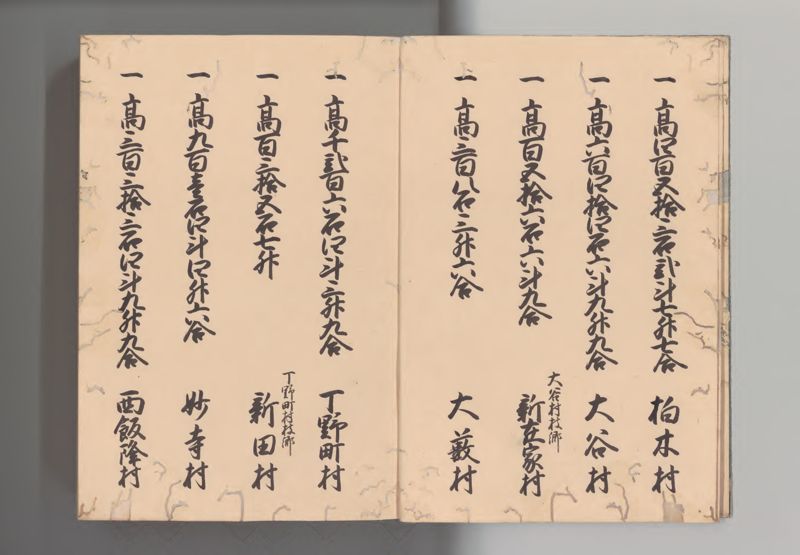 一 高四百五拾三石弐斗七升七合 柏木村
一 高六百四拾四石六斗九升九合 大谷村
大谷村枝郷
一 高百五拾六石六斗九合 新在家村
一 高三百八石三升六合 大藪村
一 高千弐百六石四斗三升九合 丁野町村
丁野町村枝郷
一 高百三拾五石七升 新田村
一 高九百壱石四斗四升六合 妙寺村
一 高三百三拾三石四斗九升九合 西飯降村